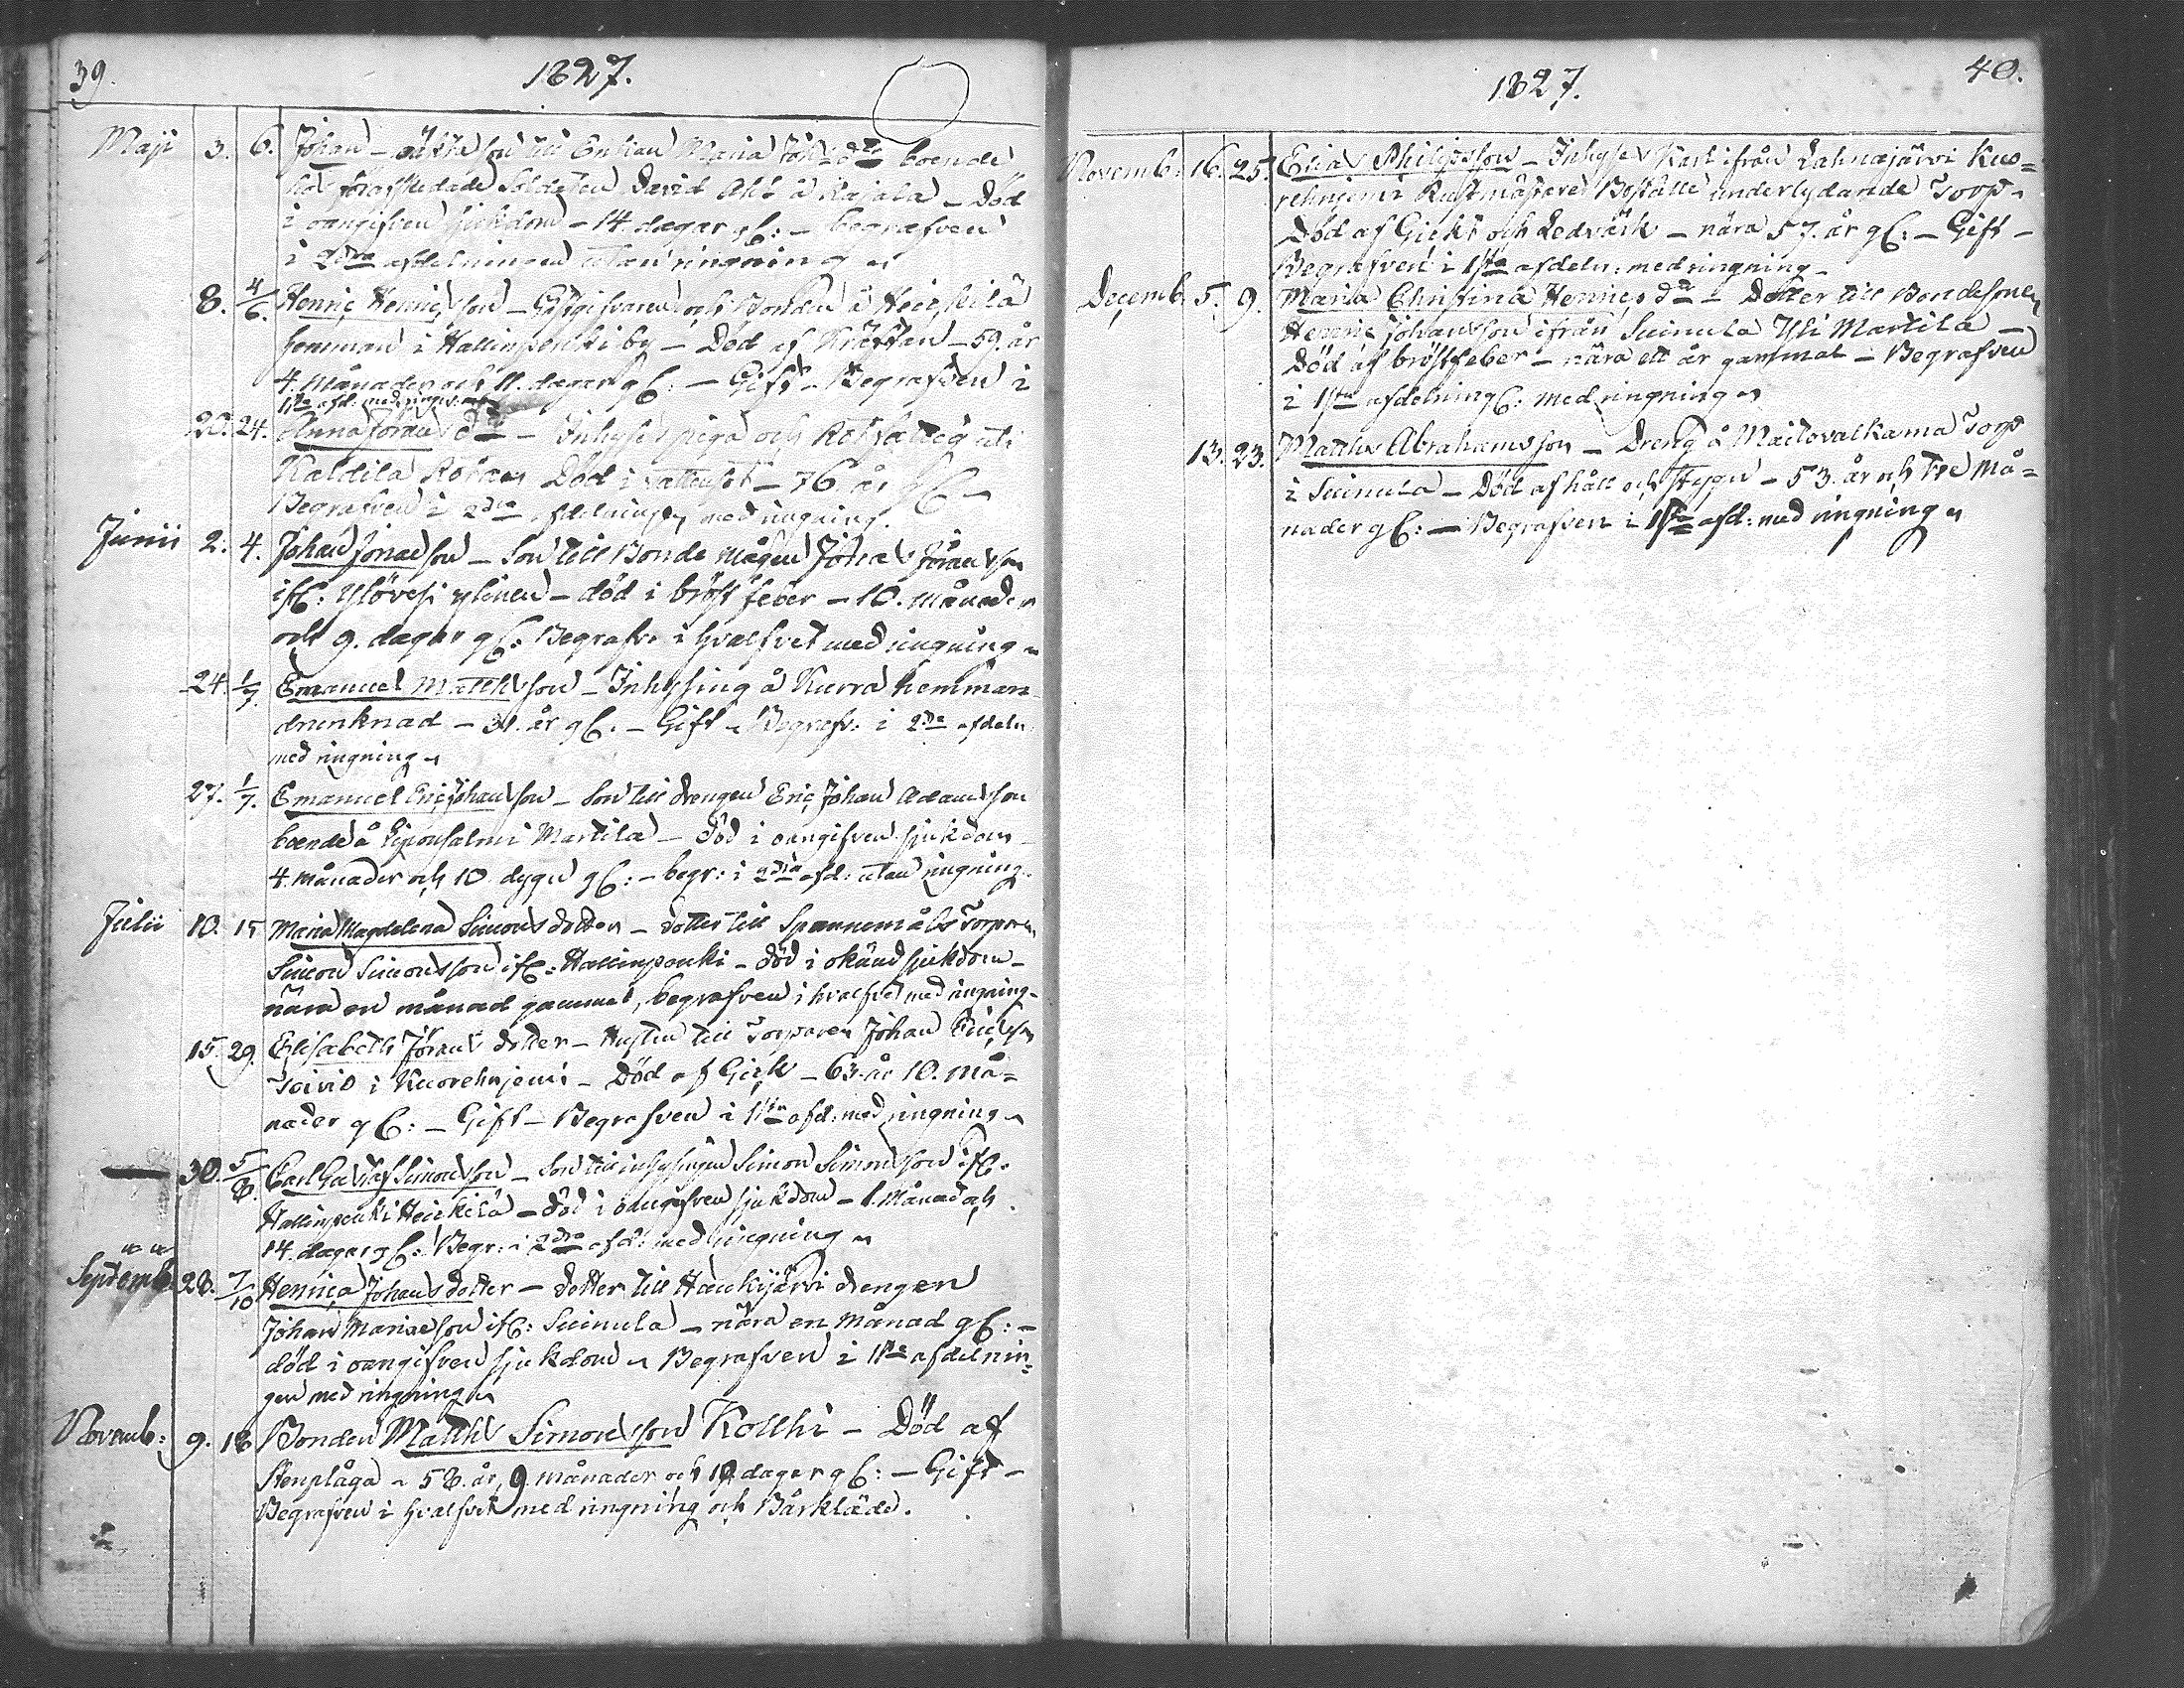 39.
1827.
Maji 3. 6. Johan – oäkta son till Enkan Maria Joh:s dr boende
hos förafskedade Soldaten David Ahl å Kajala – Död
i oangifven sjukdom – 14 dagar gl: – begrafven
i 2dra afdelningen utan ringning
8. 4/6. Henric Henricsson – Gästgifvaren och Bonden å Heickilä
hemman i Hallinpenki by – Död af Kräftan – 59. år
4. månader och 11. dagar gl: – Gift – Begrafven i
1sta afd: med ringn:
20. 24. Anna Jörans dr – Inhyses piga och Rotfattig uti
Kaldila Rotan Död i Vattusot – 76 år gl
Begrafven i 2dra afdelningen med ringning.
Junii 2. 4. Johan Jonasson – Son till Bonde mågen Jonas Jöransson
ifr: Ylövesi ylinen – död i bröst feber – 10. månader
och 9. dagar gl: Begrafv. i hvalfvet med ringning
24. 1/7. Emanuel Mattsson – Inhysing å Kurra hemman
drunknad – 31. år gl. – Gift – Begrafv: i 2dra afdeln
med ringning
27. 1/7. Emanuel Eric Johansson – Son till drengen Eric Johan Adamsson
boende å Martila – död i oangifven sjukdom
4. månader och 10 dygn gl: – begr: i 2dra afd: utan ringning.
Julii 10. 15 Maria Magdalena Simons dotter – dotter till Spannemåls Torparen
Simon Simonsson ifr: Hallinpenki – död i okänd sjukdom –
nära en månad gammal, begrafven i hvalfvet med ringning
15. 29. Elisabeth Jörans dotter – Hustru till Torparen Johan Ericsson
Toivio i Kuorehnjemi – Död af Gickt – 63. år 10. må=
nader gl: – Gift – Begrafven i 1sta afd: med ringning
— 30. 5/8. Carl Gustaf Simonsson – Son till inhysingen Simon Simonsson ifr.
Hallinpenki Heickilä – död i oangifven sjukdom – 1. Månad och
14. dagar gl: Begr: i 2dra afd: med ringning
Septemb. 28. 7/10 Henrica Johans dotter – dotter till Haukijärvi drengen
Johan Mariaeson ifr: Suinula – nära en månad gl: –
död i oangifven sjukdom Begrafven i 1sta afdelnin=
gen med ringning
Novemb: 9. 18 Bonden Matths Simonsson Kollhi – Död af
Stenplåga – 58. år, 9. månader och dagar gl: – Gift –
Begrafven i hvalfvet med ringning och Bårkläde.
1827.
40.
Novemb. 16. 25. Elias Philipsson – Inhyses Karl ifrån Lahnajärvi Kuo=
rehnjemi Rustmästare Boställe underlydande Torp –
Död af Gickt och Ledvärk – nära 57. år gl: – Gift –
Begrafven i 1sta afdeln: med ringning –
Decemb. 5. 9. Maria Christina Henrics dr – Dotter till Bondesonen
Henric Johansson ifrån Suinula Yli Martila –
Död af bröstfeber – nära ett år gammal – Begrafven
i 1sta afdelning: med ringning
13. 23. Matths Abrahamsson – Dreng å Maitovalkama Torp
i Suinula – Död af håll och Stygn – 53. år och tre Må=
nader gl: – Begrafven i 1sta afd: med ringning